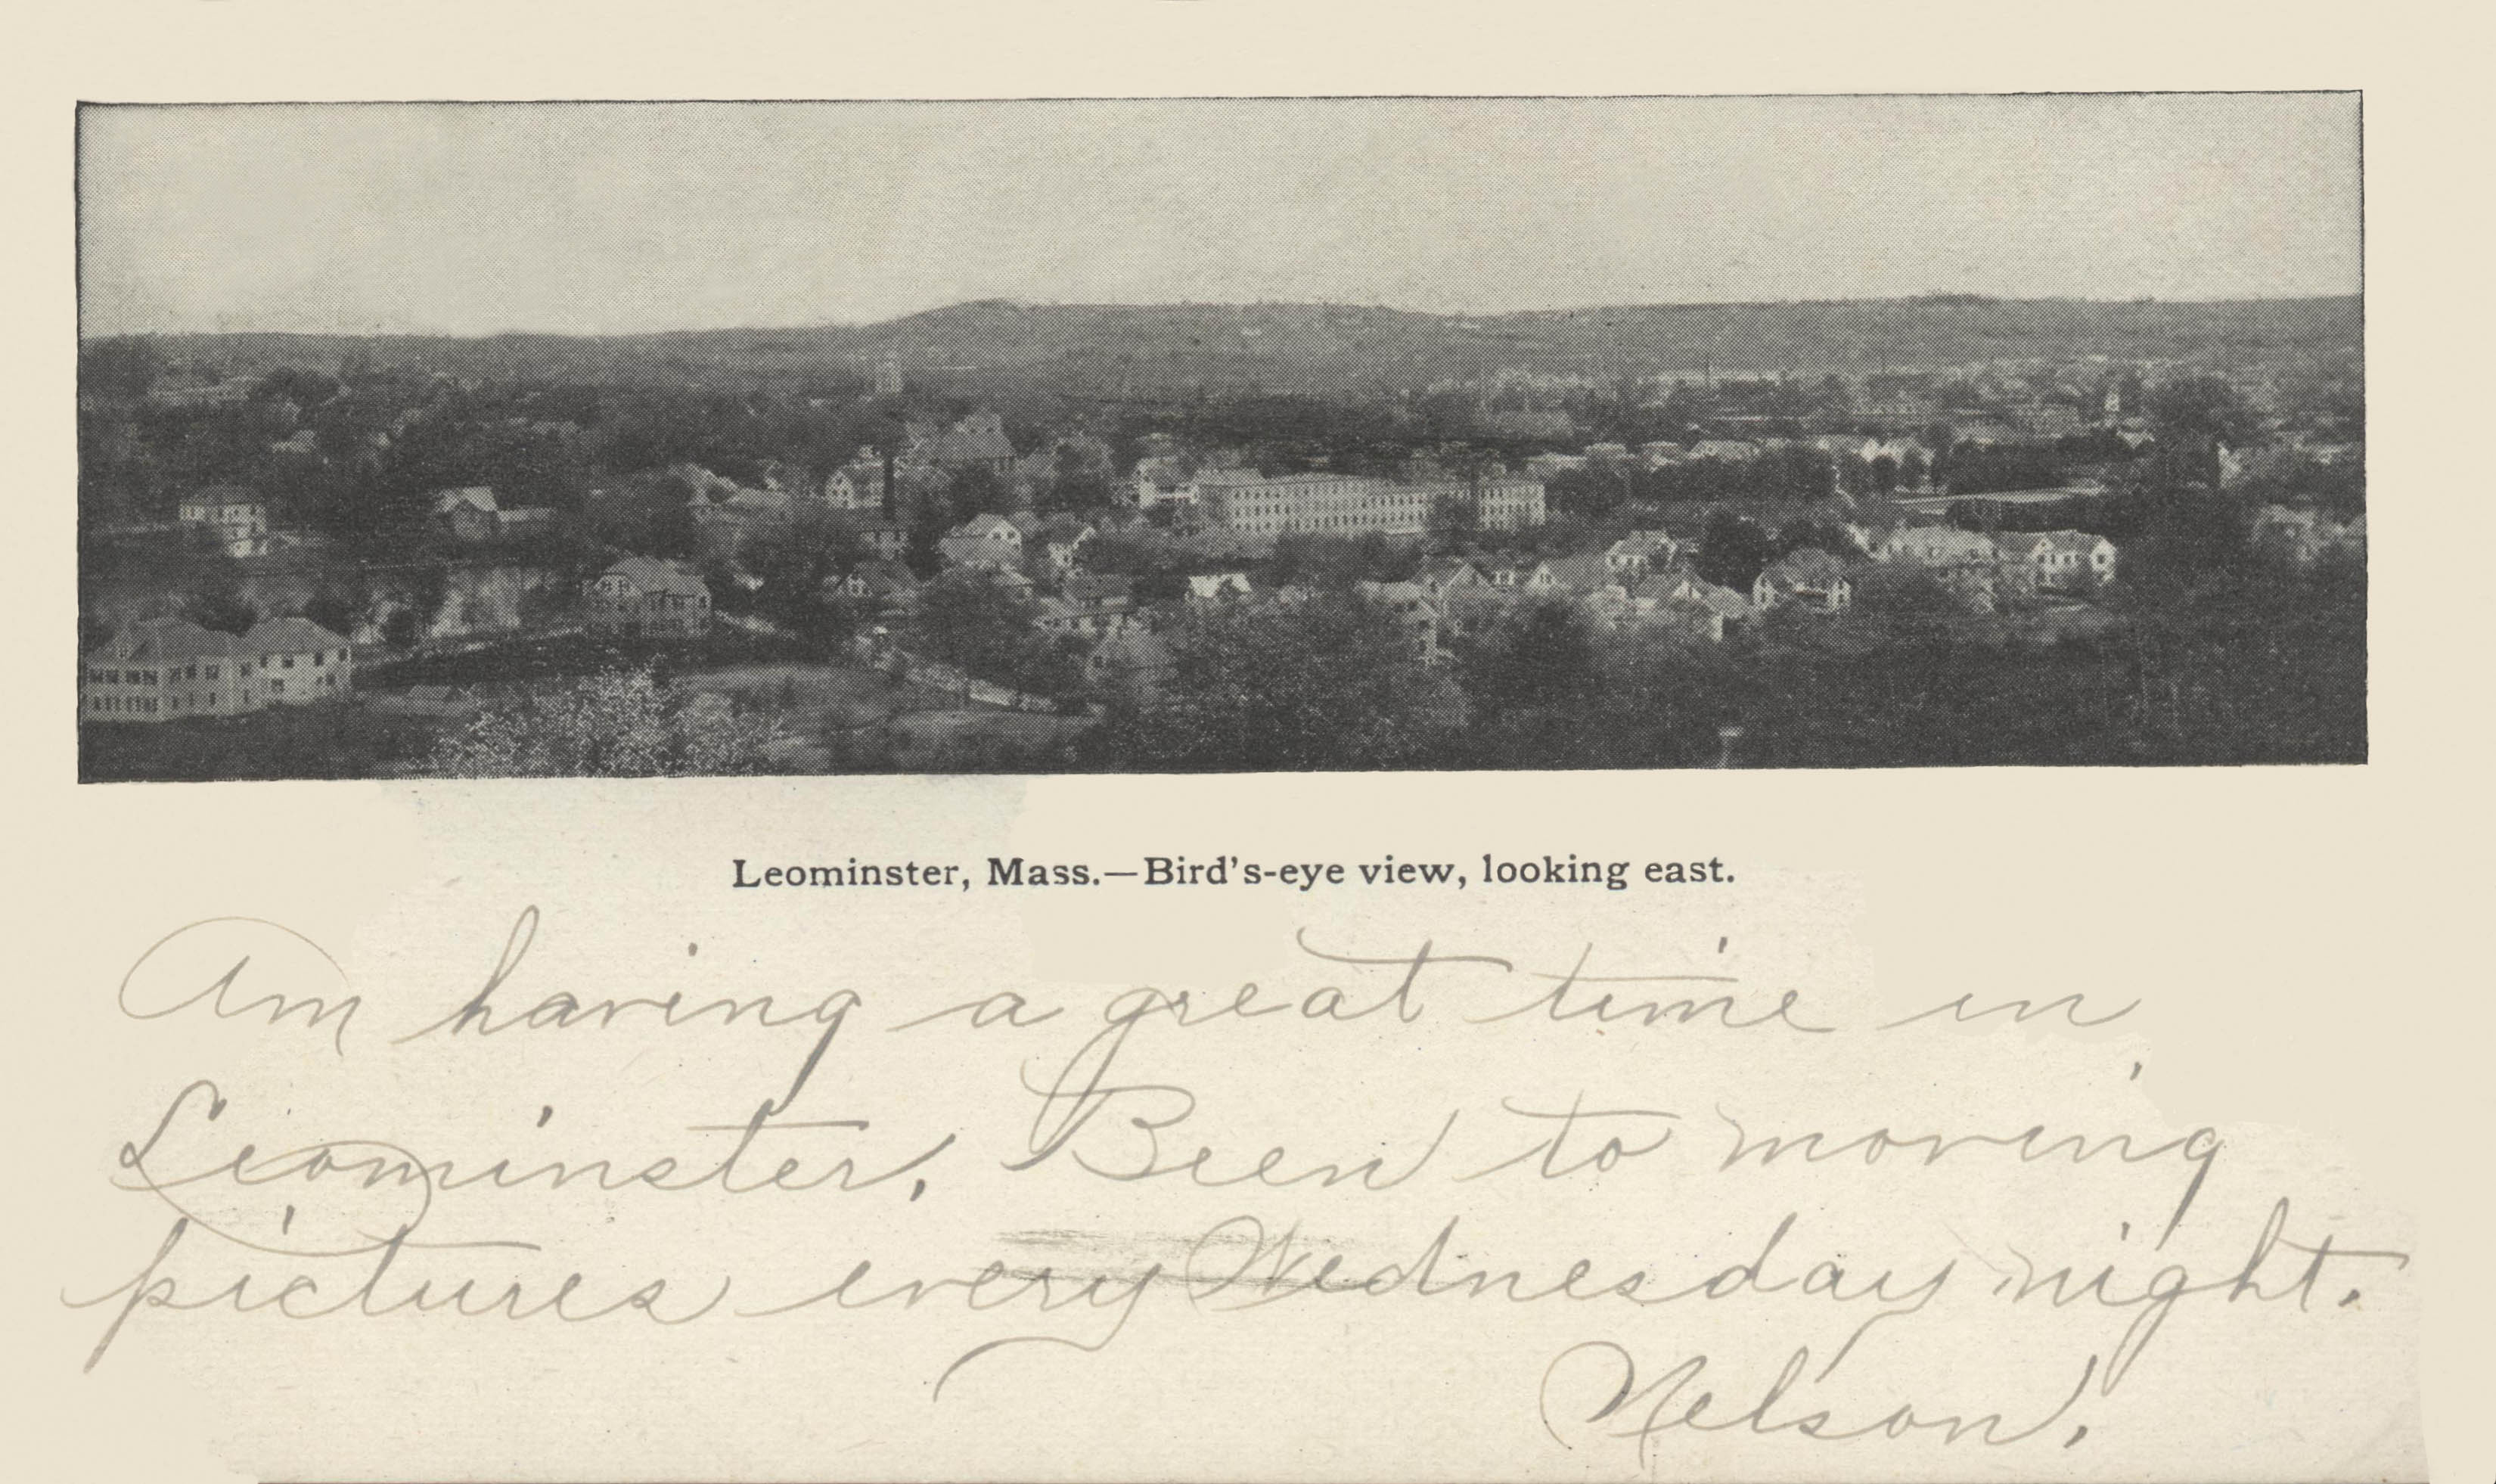 Leominster, Mass.—Bird's-eye view, looking east.
Am having a great time in
Leominster. Been to moving
pictures every Wednesday night.
Nelson.